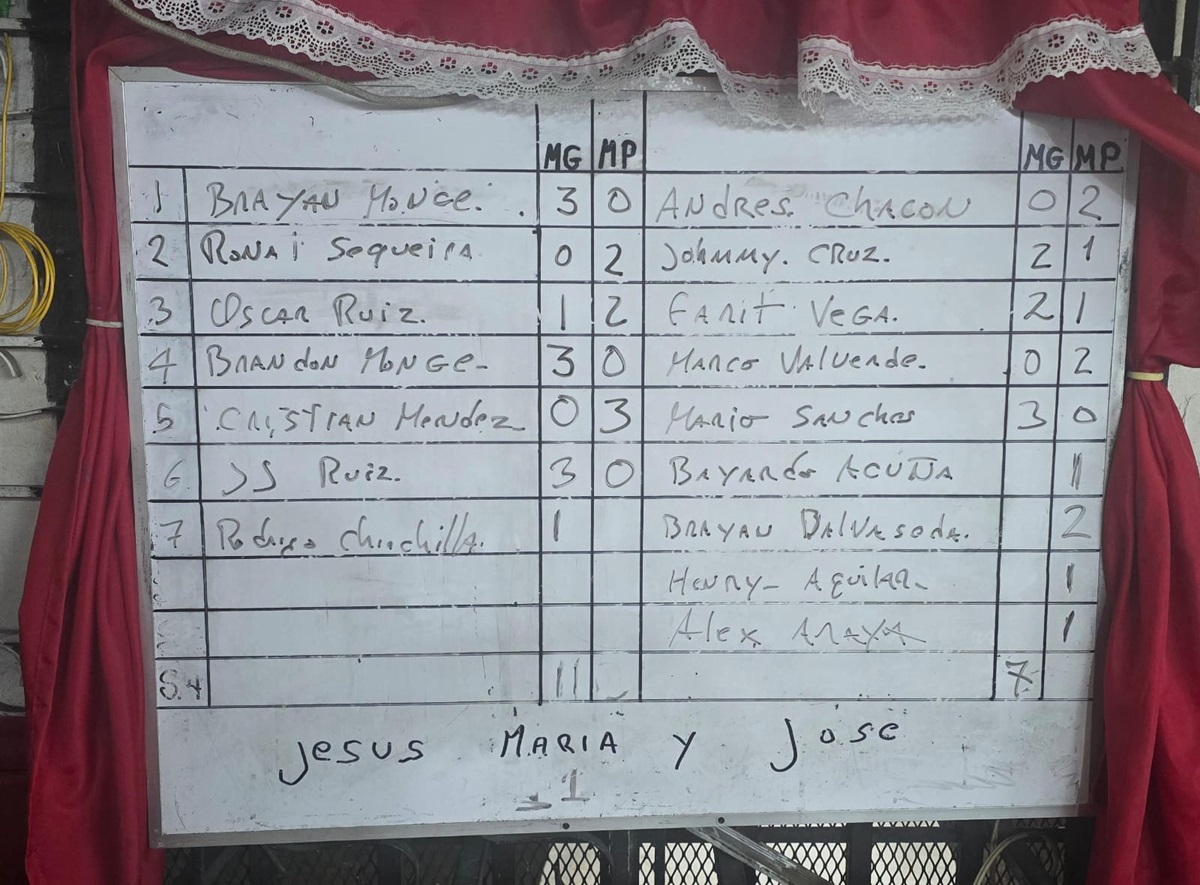 MG MP MG MP
1 BRAYAN MONGE. 3 0 ANDRES. CHACON 0 2
2 RONAl Sequeira 0 2 Johnny. CRUZ. 2 1
3 OSCAR Ruiz. 1 2 FARIT VEGA. 2 1
4 BRANdON MONGE- 3 0 MARCO VALVERde. 0 2
5 CRISTIAN Mendez 0 3 MARIO SANChes 3 0
6 JJ Ruiz. 3 0 BAYARdo ACUÑA 1
7 Rodrigo Chinchilla. 1 BRAYAN BALVASOdA. 2
HeNRy- AguilAR- 1
Alex ARAYA 1
11 7
Jesus MARIA y José
1